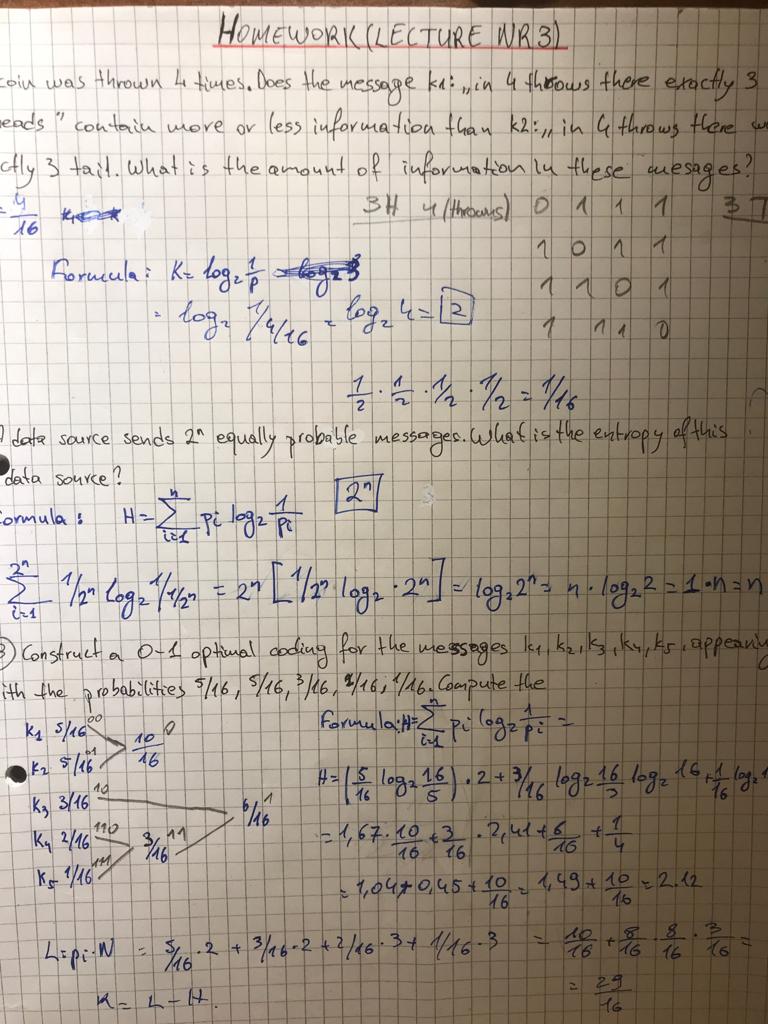 HOMEWORK (LECTURE NR3)
coin was thrown 4 times. Does the message k1: „in 4 throws there exactly 3
eads" contain more or less information than k2: „in 4 throws there w
ctly 3 tail. What is the amount of information in these mesages?
= 4/16
3H 4 (throws) 0 1 1 1 3T
1 0 1 1
Formula: K = log₂ 1/p
1 1 0 1
= log₂ 1/4/16 = log₂ 4 = 2
1 1 1 0
1/2 · 1/2 · 1/2 · 1/2 = 1/16
data source sends 2ⁿ equally probable messages. What is the entropy of this
data source?
ormula: H = Σ i=1 n pi log₂ 1/pi 2ⁿ
Σ i=1 2ⁿ 1/2ⁿ log₂ 1/1/2ⁿ = 2ⁿ [1/2ⁿ log₂ · 2ⁿ] = log₂ 2ⁿ = n · log₂ 2 = 1 · n = n
3) Construct a 0-1 optimal coding for the messages k₁, k₂, k₃, k₄, k₅, appearin
ith the probabilities 5/16, 5/16, 3/16, 2/16, 1/16. Compute the
k₁ 5/16 00
10/16 0
k₂ 5/16 01
k₃ 3/16 10
6/16 1
k₄ 2/16 110
3/16 11
k₅ 1/16 111
Formula: H = Σ i=1 n pi log₂ 1/pi =
H = (5/16 log₂ 16/5) · 2 + 3/16 log₂ 16/3 log₂ 16 + 1/16 log₂ 1
= 1,67 · 10/16 + 3/16 · 2,41 + 6/16 + 1/4
= 1,04 + 0,45 + 10/16 = 1,49 + 10/16 = 2.12
L = pi · N = 5/16 · 2 + 3/16 · 2 + 2/16 · 3 + 1/16 · 3 = 10/16 + 8/16 · 8/16 · 3/16 =
= 29/16
R = L - H.